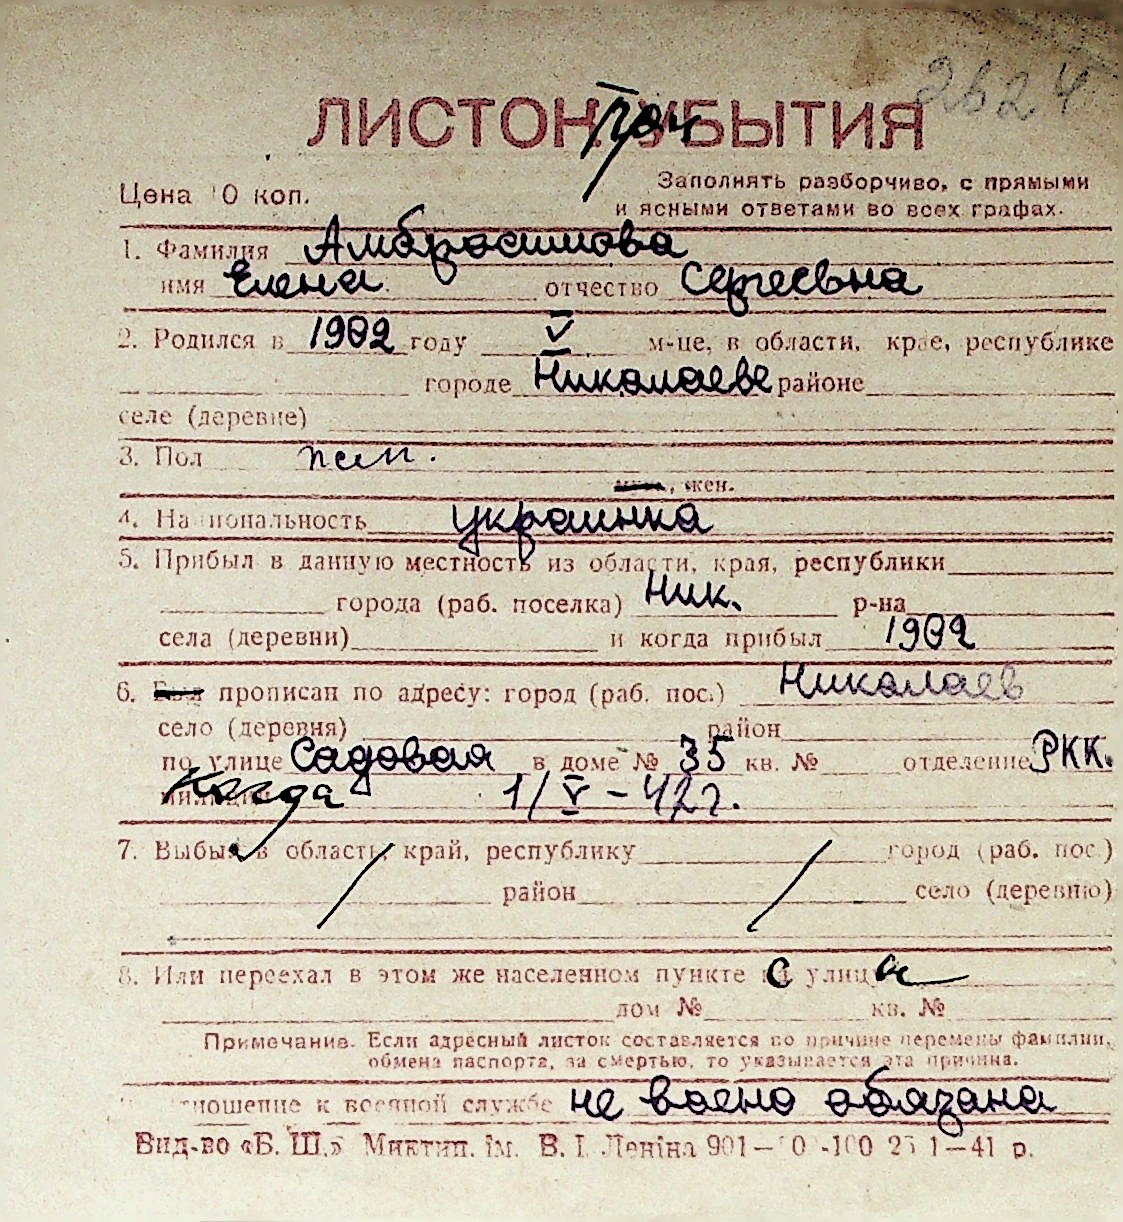 2624
ЛИСТОК УБЫТИЯ
Цена 10 коп.
Заполнять разборчиво, с прямыми
и ясными ответами во всех графах.
1. Фамилия Амбросимова
имя Елена отчество Сергеевна
2. Родился в 1902 году V м-це, в области, крае, республике
городе Николаеве районе
селе (деревне)
3. Пол
муж., жен.
4. Национальность украинка
5. Прибыл в данную местность из области, края, республики
города (раб. поселка) Ник. р-на
села (деревни) и когда прибыл 1902
6. Был прописан по адресу: город (раб. пос.) Николаев
село (деревня) район
по улице Садовая в доме № 35 кв. № отделение РКК.
милиции Когда 1/V – 42 г.
7. Выбыл в область, край, республику город (раб. пос.)
район село (деревню)
8. Или переехал в этом же населенном пункте с улица
дом № кв. №
Примечание. Если адресный листок составляется по причине перемены фамилии,
обмена паспорта, за смертью, то указывается эта причина.
отношение к военной службе не воено обязана
Вид-во «Б. Ш.» Миктип. ім. В. І. Леніна 901— 41 р.